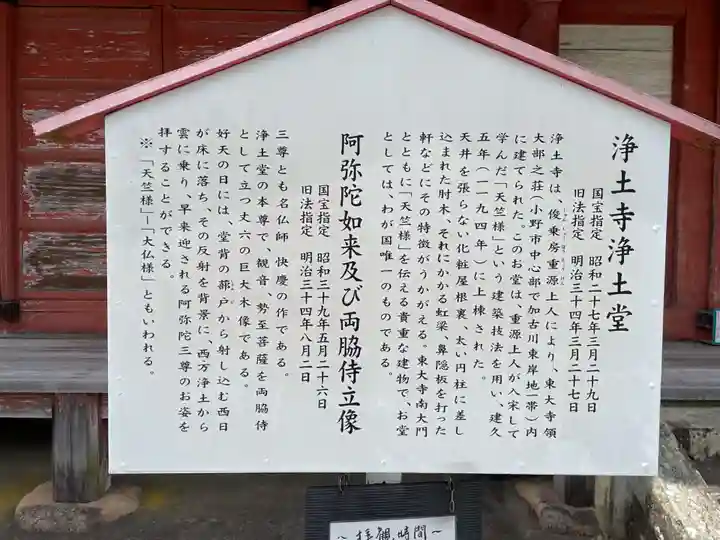 浄土寺浄土堂
国宝指定 昭和二十七年三月二十九日
旧法指定 明治三十四年三月二十七日
浄土寺は、俊乗房重源上人により、東大寺領
大部之荘(小野市中心部で加古川東岸地一帯)内
に建てられた。このお堂は、重源上人が入宋して
学んだ「天竺様」という建築技法を用い、建久
五年(一一九四年)に上棟された。
天井を張らない化粧屋根裏、太い円柱に差し
込まれた肘木、それにかかる虹梁、鼻隠板を打った
軒などにその特徴がうかがえる。東大寺南大門
とともに「天竺様」を伝える貴重な建物で、お堂
としては、わが国唯一のものである。
阿弥陀如来及び両脇侍立像
国宝指定 昭和三十九年五月二十六日
旧法指定 明治三十四年八月二日
三尊とも名仏師 快慶の作である。
浄土堂の本尊で、観音、勢至菩薩を両脇侍
として立つ丈六の巨大木像である。
好天の日には、堂背の蔀戸から射し込む西日
が床に落ち、その反射を背景に、西方浄土から
雲に乗り、早来迎される阿弥陀三尊のお姿を
拝することができる。
※「天竺様」―「大仏様」ともいわれる。
〜拝観時間〜